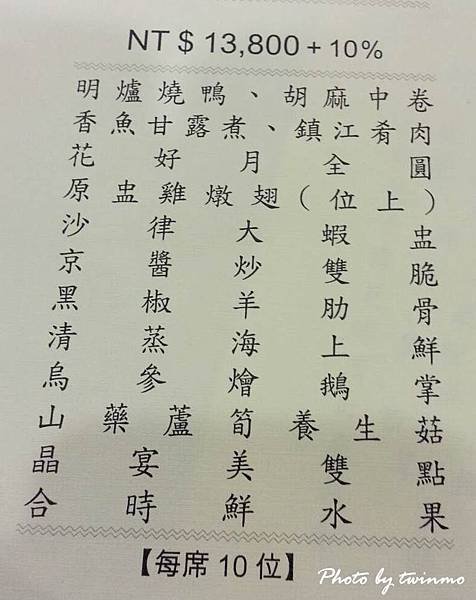 NT $ 13,800 + 10%
明爐燒鴨、胡麻中卷
香魚甘露煮、鎮江肴肉
花好月全圓
原盅雞燉翅(位上)
沙律大蝦盅
京醬炒雙脆
黑椒羊肋骨
清蒸海上鮮
烏參燴鵝掌
山藥蘆筍養生菇
晶宴美雙點
合時鮮水果
【每席10位】
Photo by twinmo